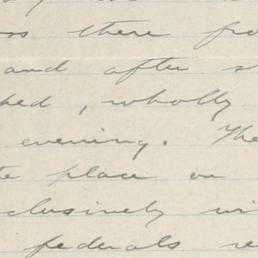 there fro
and after s
ed, wholly
evening. The
te place on
clusively wi
federals re